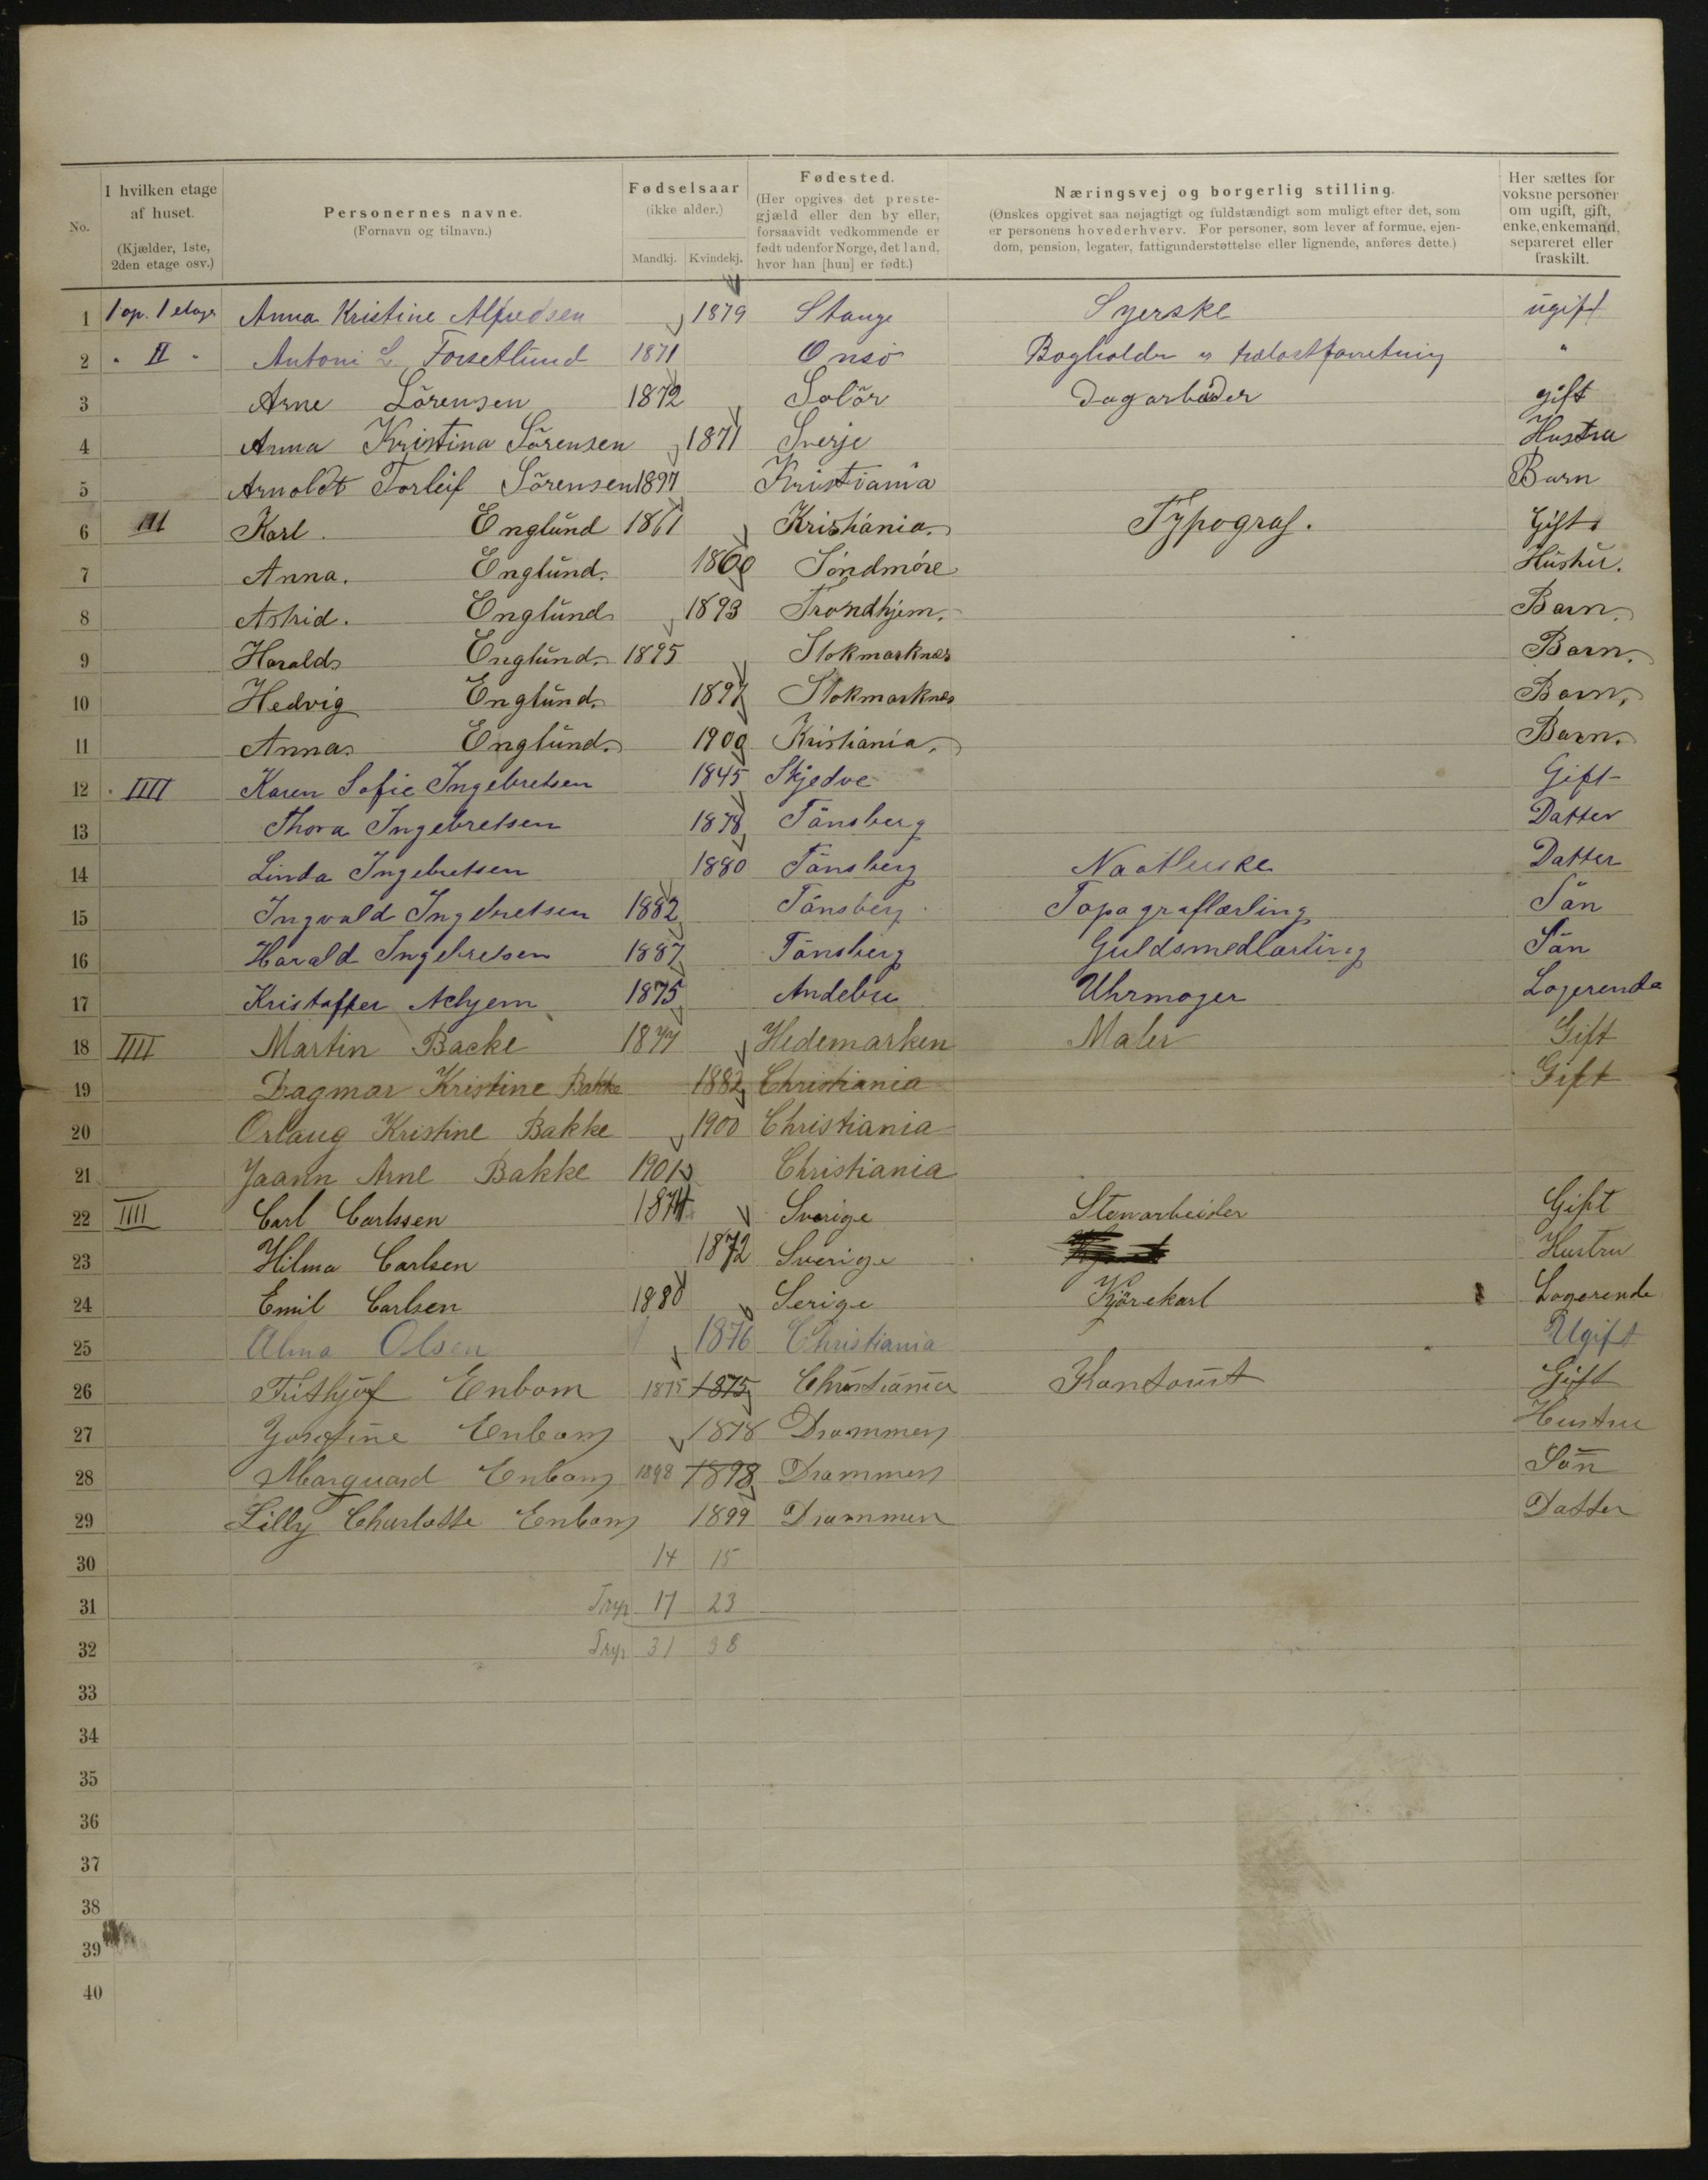 No.
I hvilken etage af huset. (Kjælder, 1ste, 2den etage osv.)
Personernes navne. (Fornavn og tilnavn.)
Fødselsaar (ikke alder.) Mandkj. Kvindekj.
Fødested. (Her opgives det prestegjæld eller den by eller, forsaavidt vedkommende er født udenfor Norge, det land, hvor han [hun] er født.)
Næringsvej og borgerlig stilling. (Ønskes opgivet saa nøjagtigt og fuldstændigt som muligt efter det, som er personens hovederhverv. For personer, som lever af formue, ejendom, pension, legater, fattigunderstøttelse eller lignende, anføres dette.)
Her sættes for voksne personer om ugift, gift, enke, enkemand, separeret eller fraskilt.
1 1 op. 1 etage Anna Kristine Alfredsen 1879 Stange Syerske ugift
2 " II " Antoni L. Forsetlund 1871 Onsö Bogholder "
3 Arne Sörensen 1872 Solör Dagarbeider gift
4 Anna Kristina Sörensen 1871 Sverje Hustru
5 Arnoldt Torleif Sörensen 1897 Kristiania Barn
6 III Karl. Englund 1861 Kristiania. Typograf. Gift.
7 Anna. Englund. 1860 Söndmöre Hustru.
8 Astrid. Englund 1893 Trondhjem. Barn.
9 Harald Englund. 1895 Stokmarknæs Barn.
10 Hedvig Englund. 1897 Stokmarknæs Barn.
11 Anna. Englund. 1900 Kristiania. Barn.
12 IIII Karen Sofie Ingebretsen 1845 Skjedve Gift
13 Thora Ingebretsen 1878 Tönsberg Datter
14 Linda Ingebretsen 1880 Tönsberg Naatlerske Datter
15 Ingvald Ingebretsen 1882 Tönsberg Topograflærling Sön
16 Harald Ingebretsen 1887 Tönsberg Guldsmedlærling Sön
17 Kristoffer Achjem 1875 Andebu Uhrmager Logerende
18 IIII Martin Backe 1877 Hedemarken Maler Gift
19 Dagmar Kristine Bakke 1882 Christiania Gift
20 Orlaug Kristine Bakke 1900 Christiania
21 Jaann Arne Bakke 1901 Christiania
22 IIII Carl Carlssen 1874 Sverige Stenarbeider Gift
23 Hilma Carlsen 1872 Sverige Hustru
24 Emil Carlsen 1880 Serige Kjörekarl Logerende
25 Alma Olsen 1876 Christiania Ugift
26 Frithjof Enbom 1875 1875 Christiania Kontorist Gift
27 Josefine Enbom 1878 Drammen Hustru
28 Marquard Enbom 1898 1898 Drammen Sön
29 Lilly Charlotte Enbom 1899 Drammen Datter
30 14 15
31 17 23
32 31 38
33
34
35
36
37
38
39
40